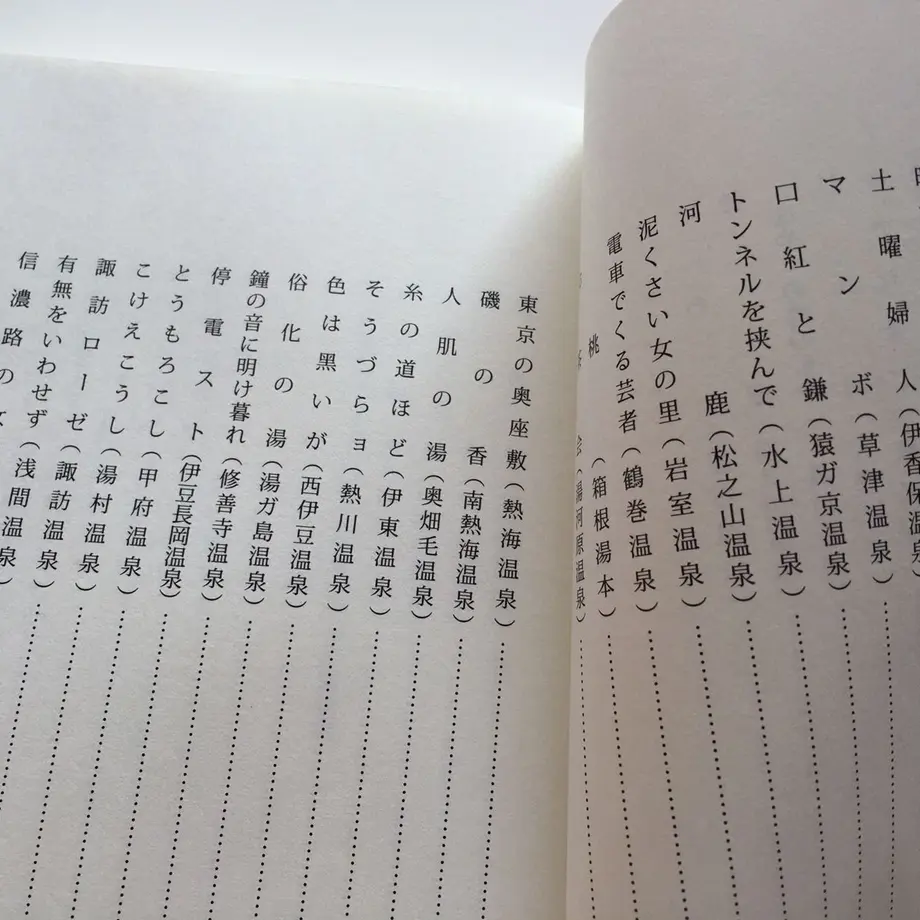 土曜婦人(伊香保温泉
マンボ(草津温泉)
口紅と鎌(猿ガ京温泉)
トンネルを挟んで(水上温泉)
河鹿(松之山温泉)
泥くさい女の里(岩室温泉)
電車でくる芸者(鶴巻温泉)
桃(箱根湯本)
絵(湯河原温泉)
東京の奥座敷(熱海温泉)
磯の香(南熱海温泉)
人肌の湯(奥畑毛温泉)
糸の道ほど(伊東温泉)
そうづらョ(熱川温泉)
色は黒いが(西伊豆温泉)
俗化の湯(湯ガ島温泉)
鐘の音に明け暮れ(修善寺温泉)
停電スト(伊豆長岡温泉)
とうもろこし(甲府温泉)
こけえこうし(湯村温泉)
諏訪ローゼ(諏訪温泉)
有無をいわせず(浅間温泉)
信濃路の